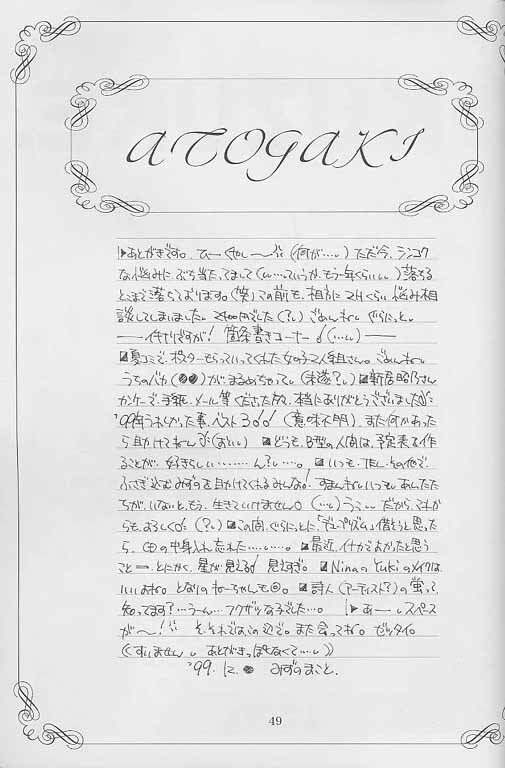 ATOGAKI
あとがきです。ひー (何が…。) ただ今、シンコク
な悩みに、ぶち当たってまして (い…っていうか、もう一年くらい。) 落ちる
とこまで落ちております。(笑) この前も、相方に 2Hくらい 悩み相
談してしまいました。 でした(?。) ごめんね。ぐらにっと。
箇条書きコーナー (…。)
夏コミで、ポスターもらっていってくれた女の子2人組さん。ごめんね。
うちのバカ(●●)が まるめちゃって。(未遂?。) 新居昭乃さん
手紙、メール等くださった方、本当にありがとうございました
'99年うれしかった事、ベスト3 (意味不明) また何かあった
ら助けてねー (おい。) どうも、B型の人間は、予定表を作
ることが、好きらしい………ん?。…。 いつも、
みずのを助けてくれるみんな! すまんねいつも。あんたた
ちが、いないと、もう、生きていけません。(…。) だから、これか
らも、よろしく (?。) この間、ぐらにっとに「 」借りようと思った
ら、CDの中身入れ忘れた………。 最近、 よかったと思う
こと とにかく、星が見える! 見えすぎ。 NinaのYukiのメイクは、
いいよね。となりのねーちゃんも◎。 詩人(アーティスト?)の 蛍って、
知ってます?…うーん…フクザツな子でした…。 あー。スペース
が〜! そ、それでは、この辺で。また会ってね。ゼッタイ。
((すいません。あとがきっぽくなくて…。))
'99. 12. ● みずのまこと.
49